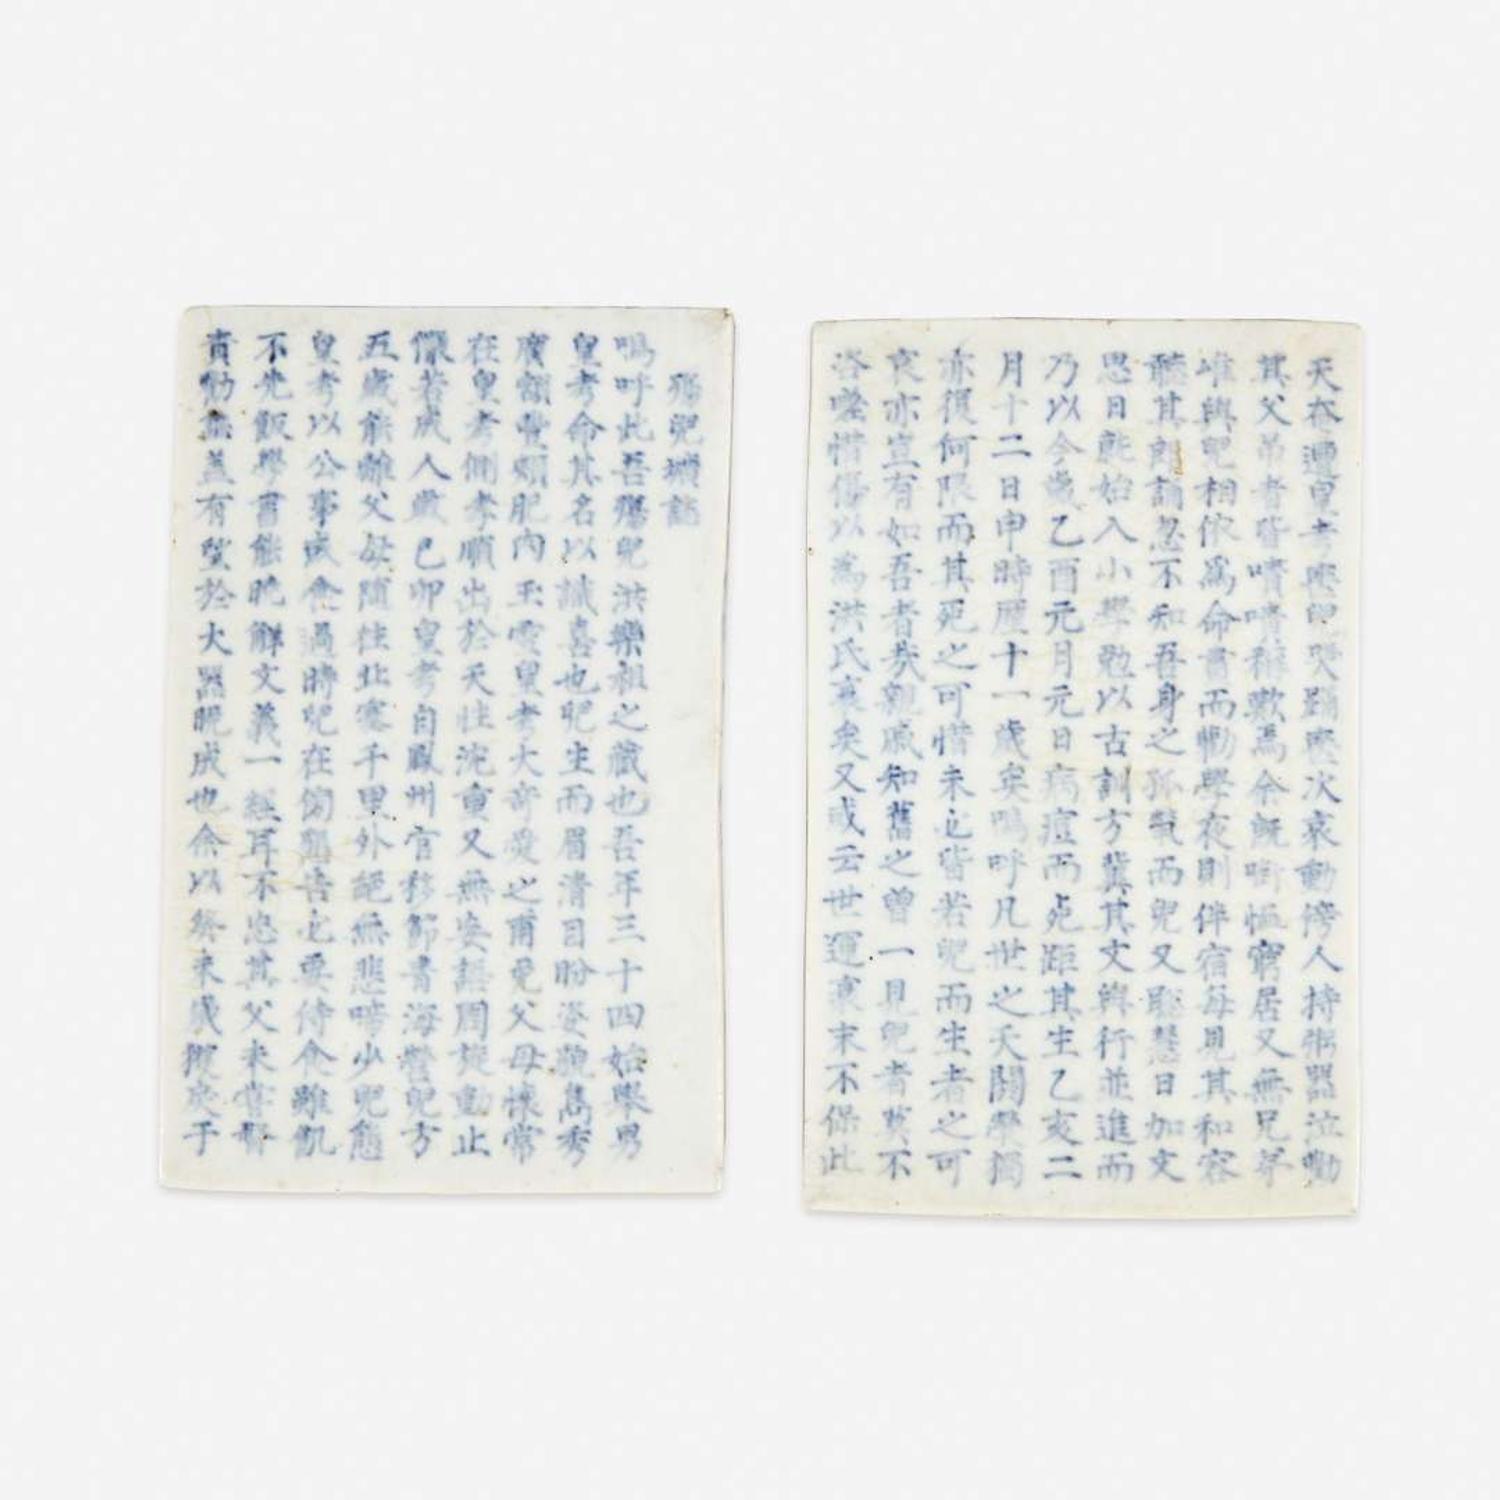 殤兒壙誌
嗚呼此吾殤兒洪樂祖之藏也吾年三十四始擧男
皇考命其名以識喜也兒生而眉淸目盼姿貌雋秀
廣額豊頰肥肉玉雪皇考大奇愛之甫免父母懷常
在皇考側孝順出於天性沈重又無妄語周旋動止
儼若成人歲己卯皇考自鳳州官移節書海營兒方
五歲能離父母隨往北塞千里外絕無悲啼少兒態
皇考以公事或食過時兒在傍雖告之要待食雖飢
不先飯學書能曉解文義一經耳不忘其父未嘗督
責勸無盖有望於大器晩成也余以癸未歲獲戾于
天奄遭皇考喪兒哭踊喪次哀動傍人持粥器泣勸
其父吊者皆嘖嘖稱歎焉余旣啣恤窮居又無兄弟
唯與兒相依爲命晝而勸學夜則伴宿每見其和容
聽其郞誦忽不知吾身之孤煢而兒又聡慧日加文
思日新始入小學勉以古訓方冀其文與行並進而
乃以今歲乙酉元月元日病痘而死距其生乙亥二
月十二日申時歷十一歲矣嗚呼凡世之夭閼擧獨
亦復何限而其死之可惜未必皆若兒而生者之可
哀亦豈有如吾者哉親戚知舊之曾一見兒者莫不
咨嗟惜傷以爲洪氏衰矣又或云世運衰末不保此